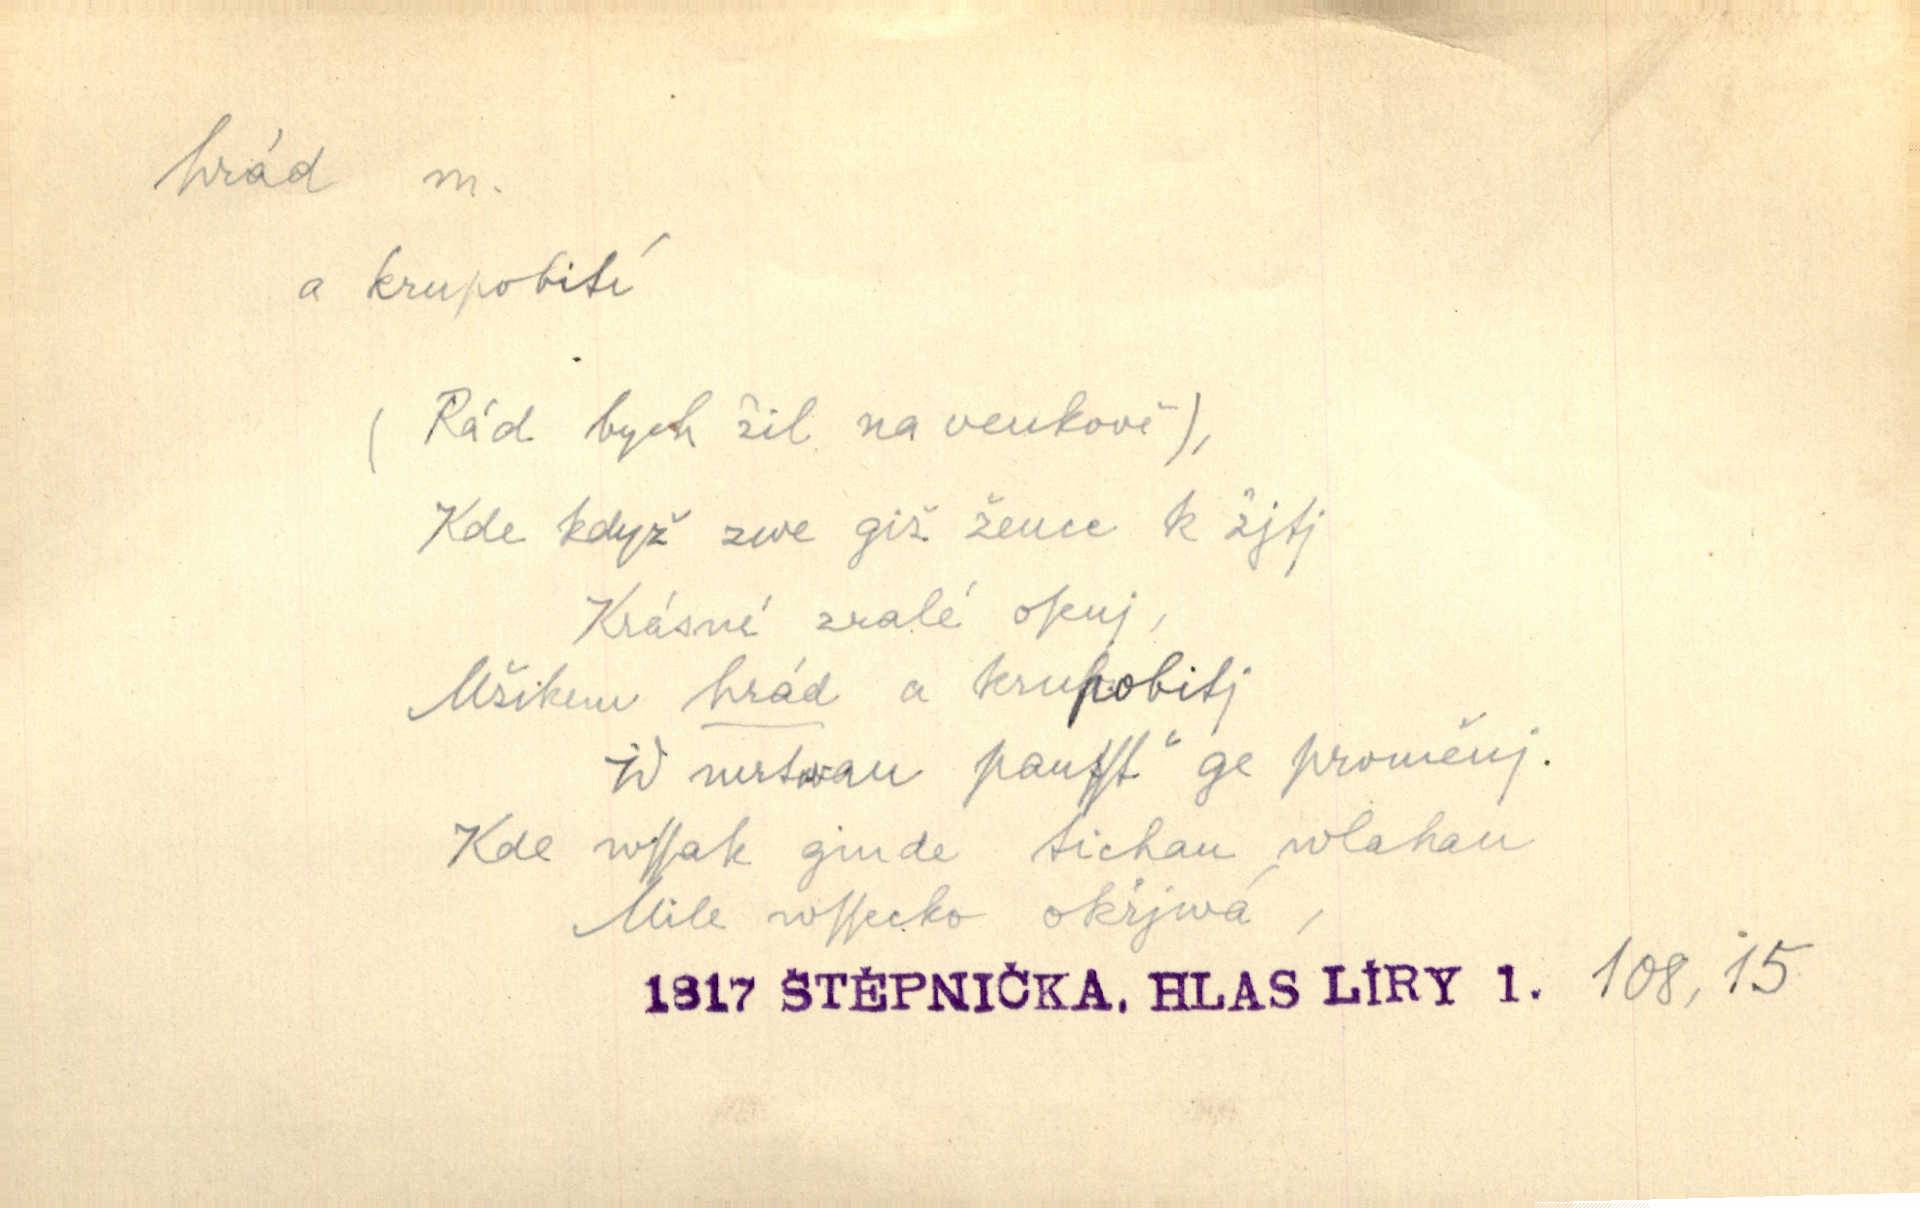 hrád m.
a krupobití
(Rád bych žil na venkově),
Kde když zwe giž žence k žjtj
Krásné zralé osenj,
Mžikem hrád a krupobitj
W mrtwau pausst' ge proměnj.
Kde wssak ginde tichau wlahau
Mile wssecko okřjwá,
1817 ŠTĚPNIČKA, HLAS LÍRY 1. 108, 15